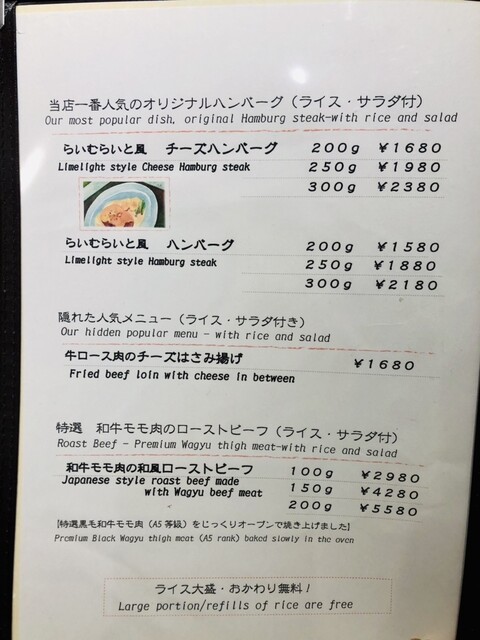 当店一番人気のオリジナルハンバーグ（ライス・サラダ付）
Our most popular dish, original Hamburg steak-with rice and salad
らいむらいと風 チーズハンバーグ 200g ￥1680
Limelight style Cheese Hamburg steak 250g ￥1980
300g ￥2380
らいむらいと風 ハンバーグ 200g ￥1580
Limelight style Hamburg steak 250g ￥1880
300g ￥2180
隠れた人気メニュー（ライス・サラダ付き）
Our hidden popular menu - with rice and salad
牛ロース肉のチーズはさみ揚げ ￥1680
Fried beef loin with cheese in between
特選 和牛モモ肉のローストビーフ（ライス・サラダ付）
Roast Beef - Premium Wagyu thigh meat-with rice and salad
和牛モモ肉の和風ローストビーフ 100g ￥2980
Japanese style roast beef made 150g ￥4280
with Wagyu beef meat 200g ￥5580
[特選黒毛和牛モモ肉（A5等級）をじっくりオーブンで焼き上げました]
Premium Black Wagyu thigh meat (A5 rank) baked slowly in the oven
ライス大盛・おかわり無料！
Large portion/refills of rice are free